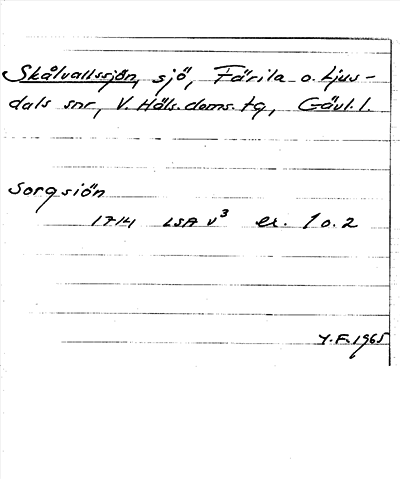 Skålvallssjön, sjö, Färila o. Ljus-
dals snr, V. Häls. doms. tg, Gävl. l.
Sorgsiön
1714 LSA v³ er. 1 o. 2
Y.F. 1965